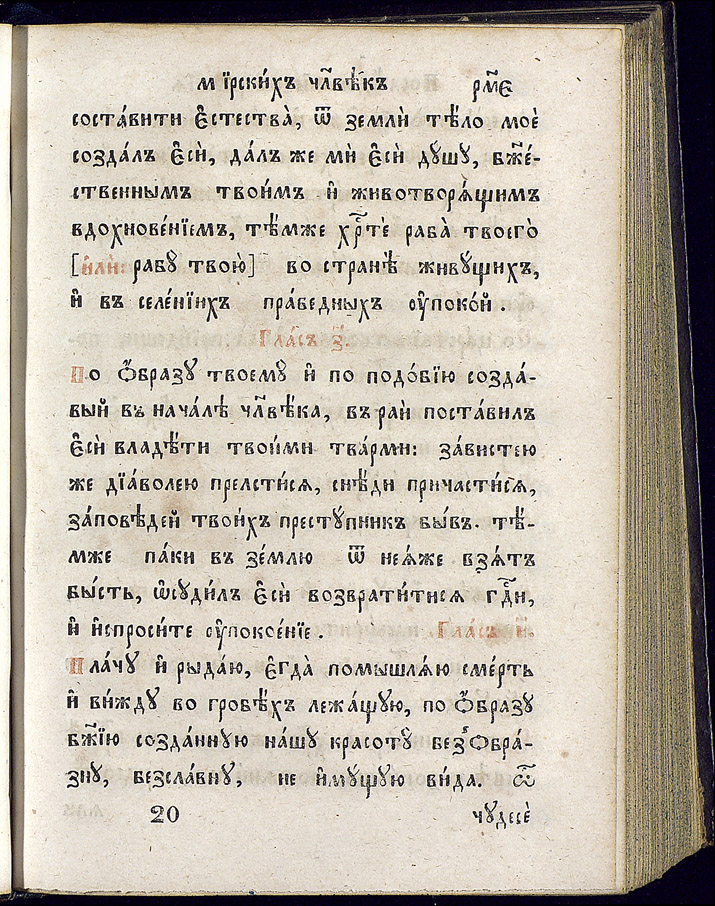 мїрски́хъ чл҃вѣ́къ рм҃є
соста́вити є҆стества̀, ѿ землѝ тѣ́ло моѐ
созда́лъ є҆сѝ, да́лъ же мѝ є҆сѝ дꙋ́шꙋ, бж҃е́-
ственнымъ твои́мъ и҆ животворѧ́щимъ
вдохнове́нїемъ, тѣ́мже хр҃тѐ раба̀ твоегѡ̀
[и҆лѝ: рабꙋ̀ твою̀] во странѣ̀ живꙋ́щихъ,
и҆ въ селе́нїихъ пра́ведныхъ оу҆поко́й.
Гла́съ з҃.
По ѻ҆́бразꙋ твоемꙋ̀ и҆ по подо́бїю созда́-
вый въ нача́лѣ чл҃вѣ́ка, въ раѝ поста́вилъ
є҆сѝ владѣ́ти твои́ми тва́рми: за́вистею
же дїа́волею прелсти́сѧ, снѣ́ди причасти́сѧ,
за́повѣдей твои́хъ престꙋ́пникъ бы́въ. тѣ́-
мже па́ки въ зе́млю ѿ неѧ́же взѧ́тъ
бы́сть, ѡ҆сꙋди́лъ є҆сѝ возврати́тисѧ гдⷭ҇и,
и҆ и҆спроси́те оу҆покое́нїе. Гла́съ и҃.
Пла́чꙋ и҆ рыда́ю, є҆гда̀ помышлѧ́ю сме́рть
и҆ ви́ждꙋ во гробѣ́хъ лежа́щꙋю, по ѻ҆́бразꙋ
бж҃їю созда́ннꙋю на́шꙋ красотꙋ̀ безѻбра́-
знꙋ, безсла́внꙋ, не и҆мꙋ́щꙋю ви́да. ѽ
20 чꙋдесѐ